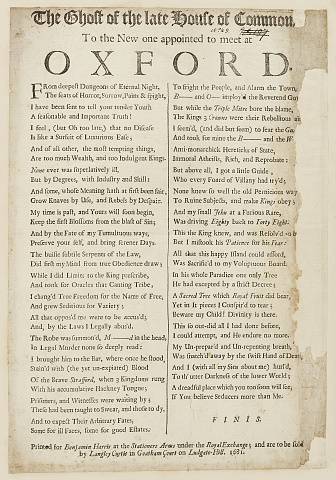 The Ghost of the late House of Common,
To the New one appointed to meet at
OXFORD.
FRom deepest Dungeons of Eternal Night,
The seats of Horror, Sorrow, Pains & Spight,
I have been sent to tell your tender Youth
A seasonable and Important Truth!
I feel, (but Oh too late,) that no Disease
Is like a Surfeit of Luxurious Ease;
And of all other, the most tempting things,
Are too much Wealth, and too Indulgent Kings.
None ever was superlatively ill,
But by Degrees, with Industry and Skill:
And some, whose Meaning hath at first been fair,
Grow Knaves by Use, and Rebels by Despair.
My time is past, and Yours will soon begin,
Keep the first Blossoms from the blast of Sin;
And by the Fate of my Tumultuous ways,
Preserve your self, and bring serener Days.
The busie subtile Serpents of the Law,
Did first my Mind from true Obedience draw;
While I did Limits to the King prescribe,
And took for Oracles that Canting Tribe,
I chang'd True Freedom for the Name of Free,
And grew Seditious for Variety;
All that oppos'd me were to be accus'd;
And, by the Laws I Legally abus'd.
The Robe was summon'd, M——d in the head,
In Legal Murder none so deeply read:
I brought him to the Bar, where once he stood
Stain'd with (the yet un-expiated) Blood
Of the Brave Strafford, when 3 Kingdoms rung
With his accumulative Hackney Tongue;
Prisoners, and Witnesses were waiting by;
These had been taught to Swear, and those to dy,
And to expect Their Arbitrary Fates,
Some for ill Faces, some for good Estates.
To fright the People, and Alarm the Town,
B—— and O— employ'd the Reverend
But while the Triple Mitre bore the blame,
The Kings 3 Crowns were their Rebellious
I seem'd, (and did but seem) to fear the
And took for mine the B—— and the
Anti-monarchick Hereticks of State,
Immoral Atheists, Rich, and Reprobate:
But above all, I got a little Guide,
Who every Foard of Villany had try'd;
None knew so well the old Pernicious way
To Ruine Subjects, and make Kings obey;
And my small Jehu at a Furious Rate,
Was driving Eighty back to Forty Eight:
This the King knew, and was Resolv'd
But I mistook his Patience for his Fear:
All that this happy Island could afford,
Was Sacrific'd to my Voluptuous Board.
In his whole Paradice one only Tree
He had excepted by a strict Decree;
A Sacred Tree which Royal Fruit did bear,
Yet it In pieces I Conspir'd to tear;
Beware my Child! Divinity is there.
This so out-did all I had done before,
I could attempt, and He endure no more.
My Un-prepar'd and Un-repenting breath,
Was snatch'd away by the swift Hand of Death,
And I (with all my Sins about me) hurl'd,
To th' utter Darkness of the lower World;
A dreadful place which you too soon will see,
If you believe Seducers more than Me.
FINIS.
Printed for Benjamin Harris at the Stationers Arms under the Royal Exchange; and are to be sold
by Langley Curtis in Goatham Court on Ludgate-Hill. 1681.